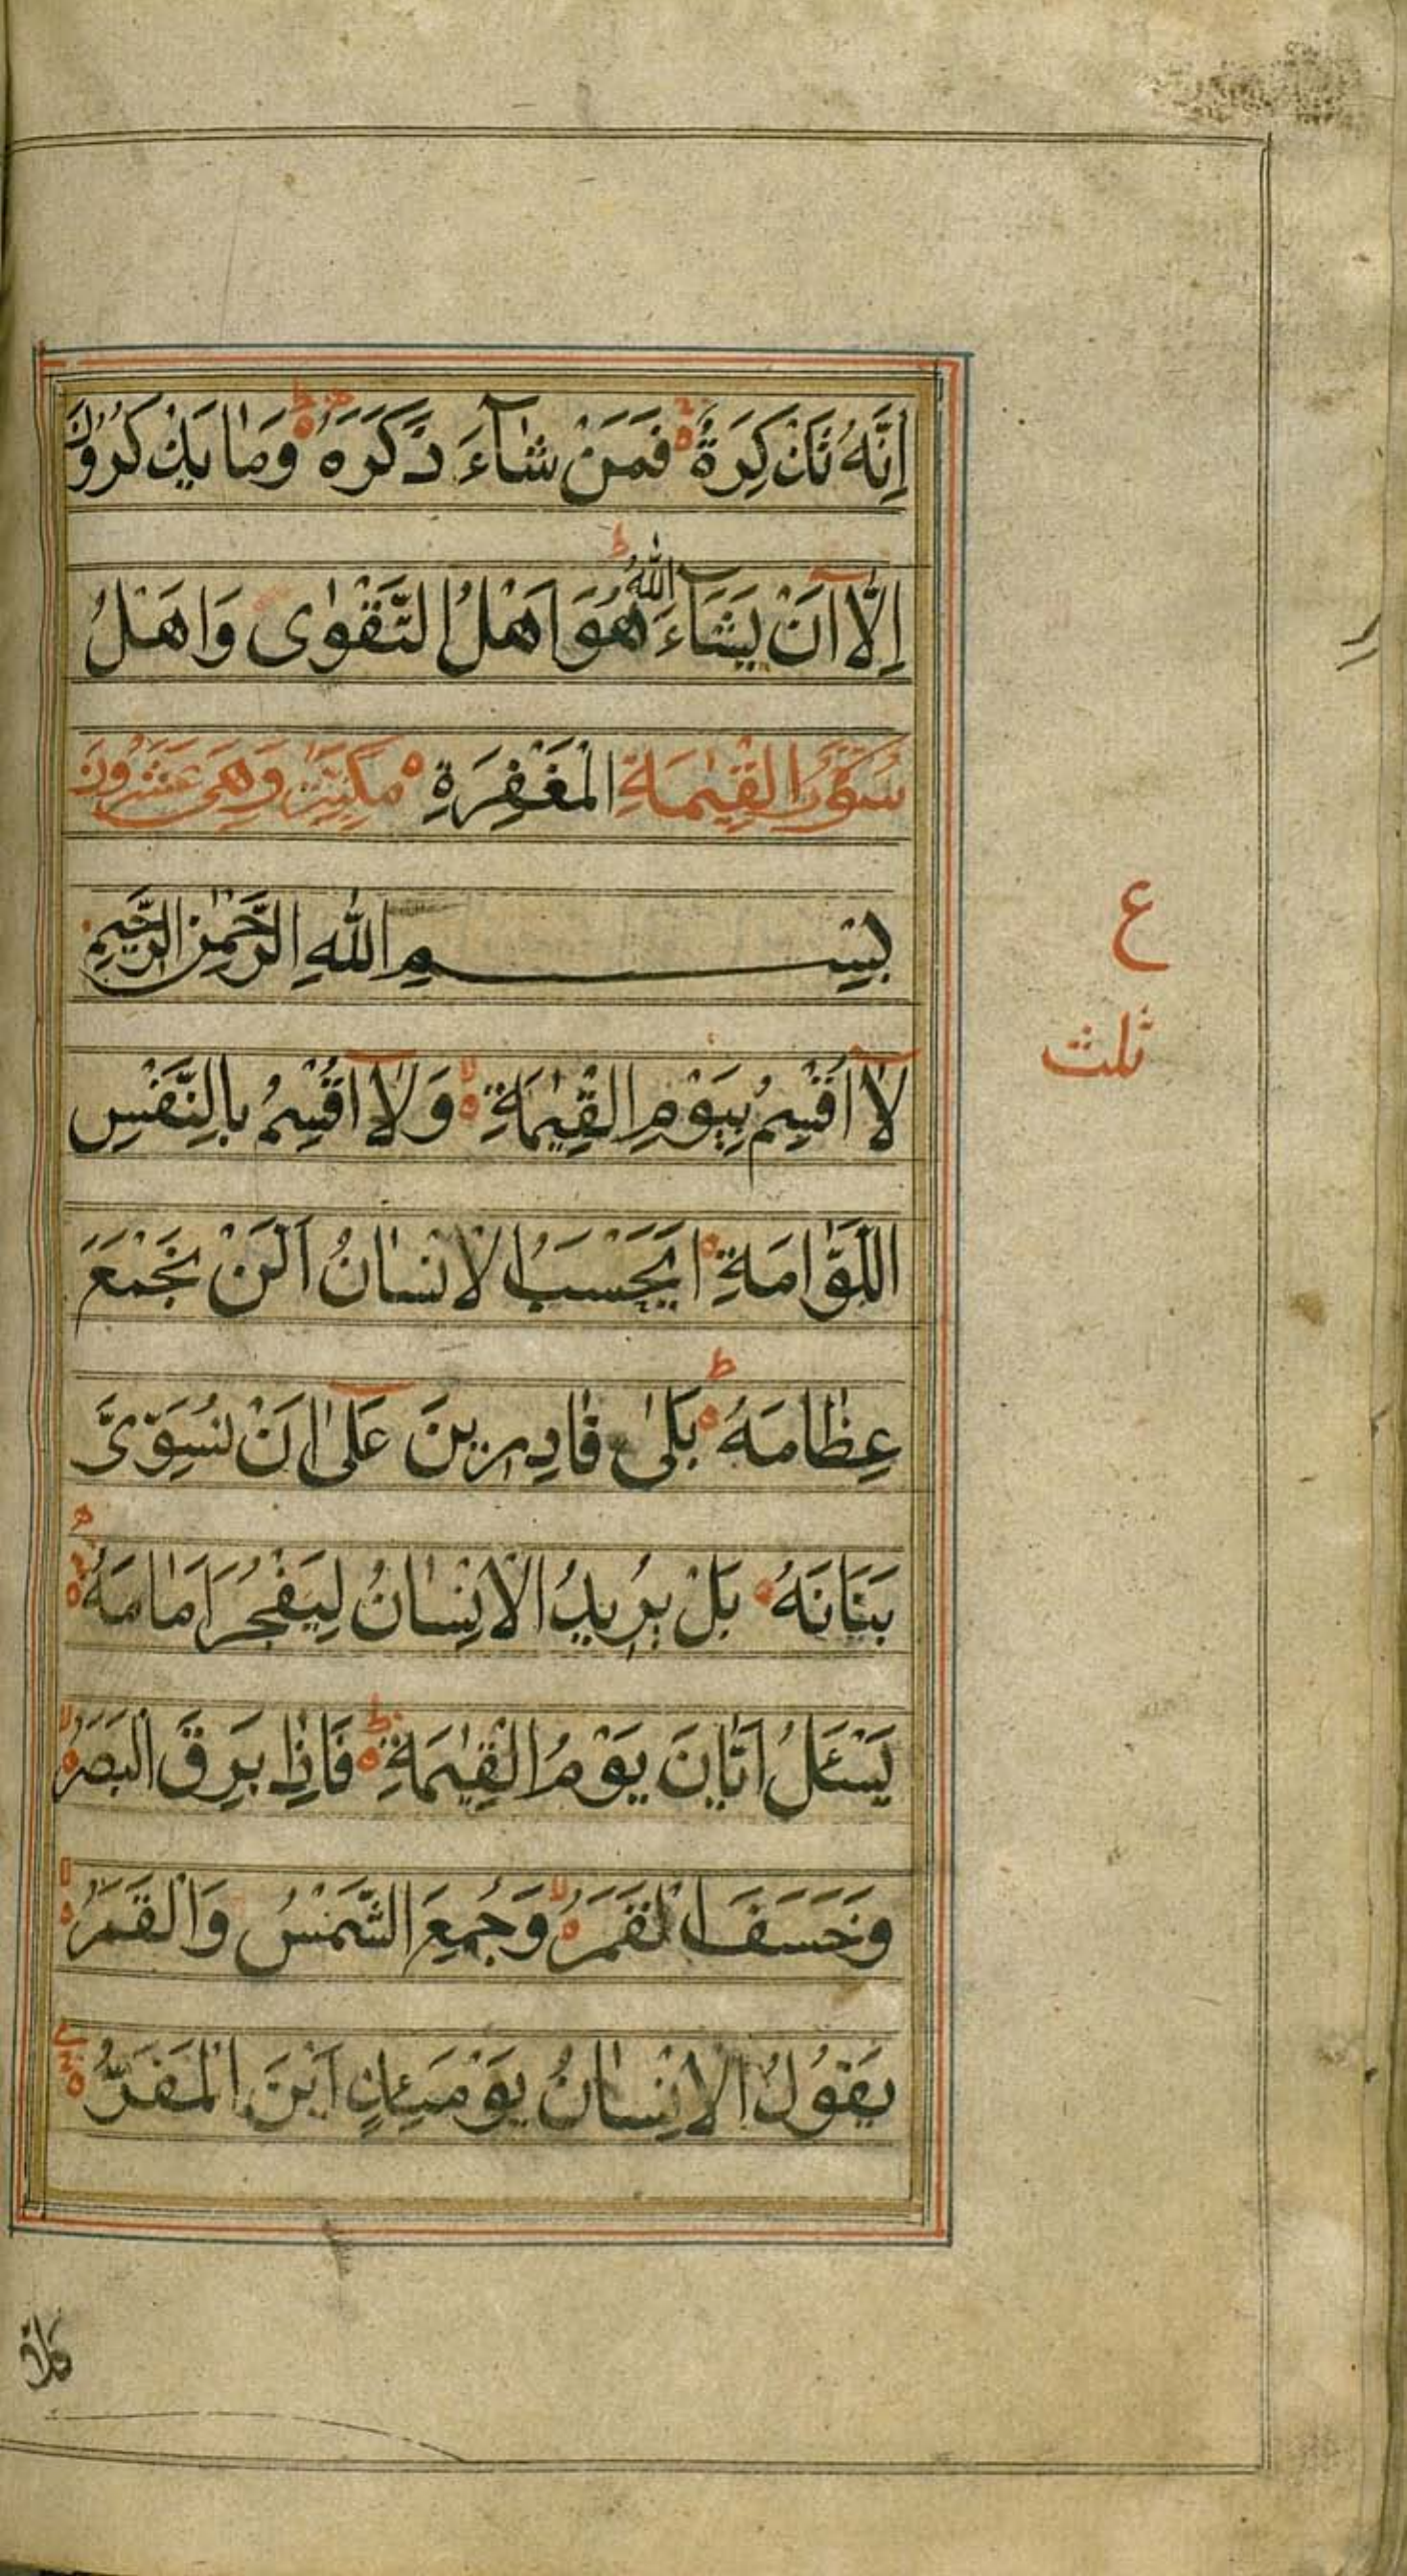 اِنَّهُ تَذْكِرَةٌ فَمَنْ شَآءَ ذَكَرَهُ وَمَا يَذْكُرُوْنَ
اِلَّآ اَنْ يَشَآءَ اللّٰهُ هُوَ اَهْلُ التَّقْوٰى وَاَهْلُ
سُوْرَةُ الْقِيٰمَةِ الْمَغْفِرَةِ مَكِّيَّةٌ وَهِىَ عَشَرُوْنَ
بِسْمِ اللّٰهِ الرَّحْمٰنِ الرَّحِيْمِ
لَآ اُقْسِمُ بِيَوْمِ الْقِيٰمَةِ وَلَآ اُقْسِمُ بِالنَّفْسِ
ع
ثلث
اللَّوَّامَةِ اَيَحْسَبُ الْاِنْسَانُ اَلَّنْ نَجْمَعَ
عِظَامَهُ بَلٰى قَادِرِيْنَ عَلٰٓى اَنْ نُسَوِّىَ
بَنَانَهُ بَلْ يُرِيْدُ الْاِنْسَانُ لِيَفْجُرَ اَمَامَهُ
يَسْئَلُ اَيَّانَ يَوْمُ الْقِيٰمَةِ فَاِذَا بَرِقَ الْبَصَرُ
وَخَسَفَ الْقَمَرُ وَجُمِعَ الشَّمْسُ وَالْقَمَرُ
يَقُوْلُ الْاِنْسَانُ يَوْمَئِذٍ اَيْنَ الْمَفَرُّ
كَلَّا